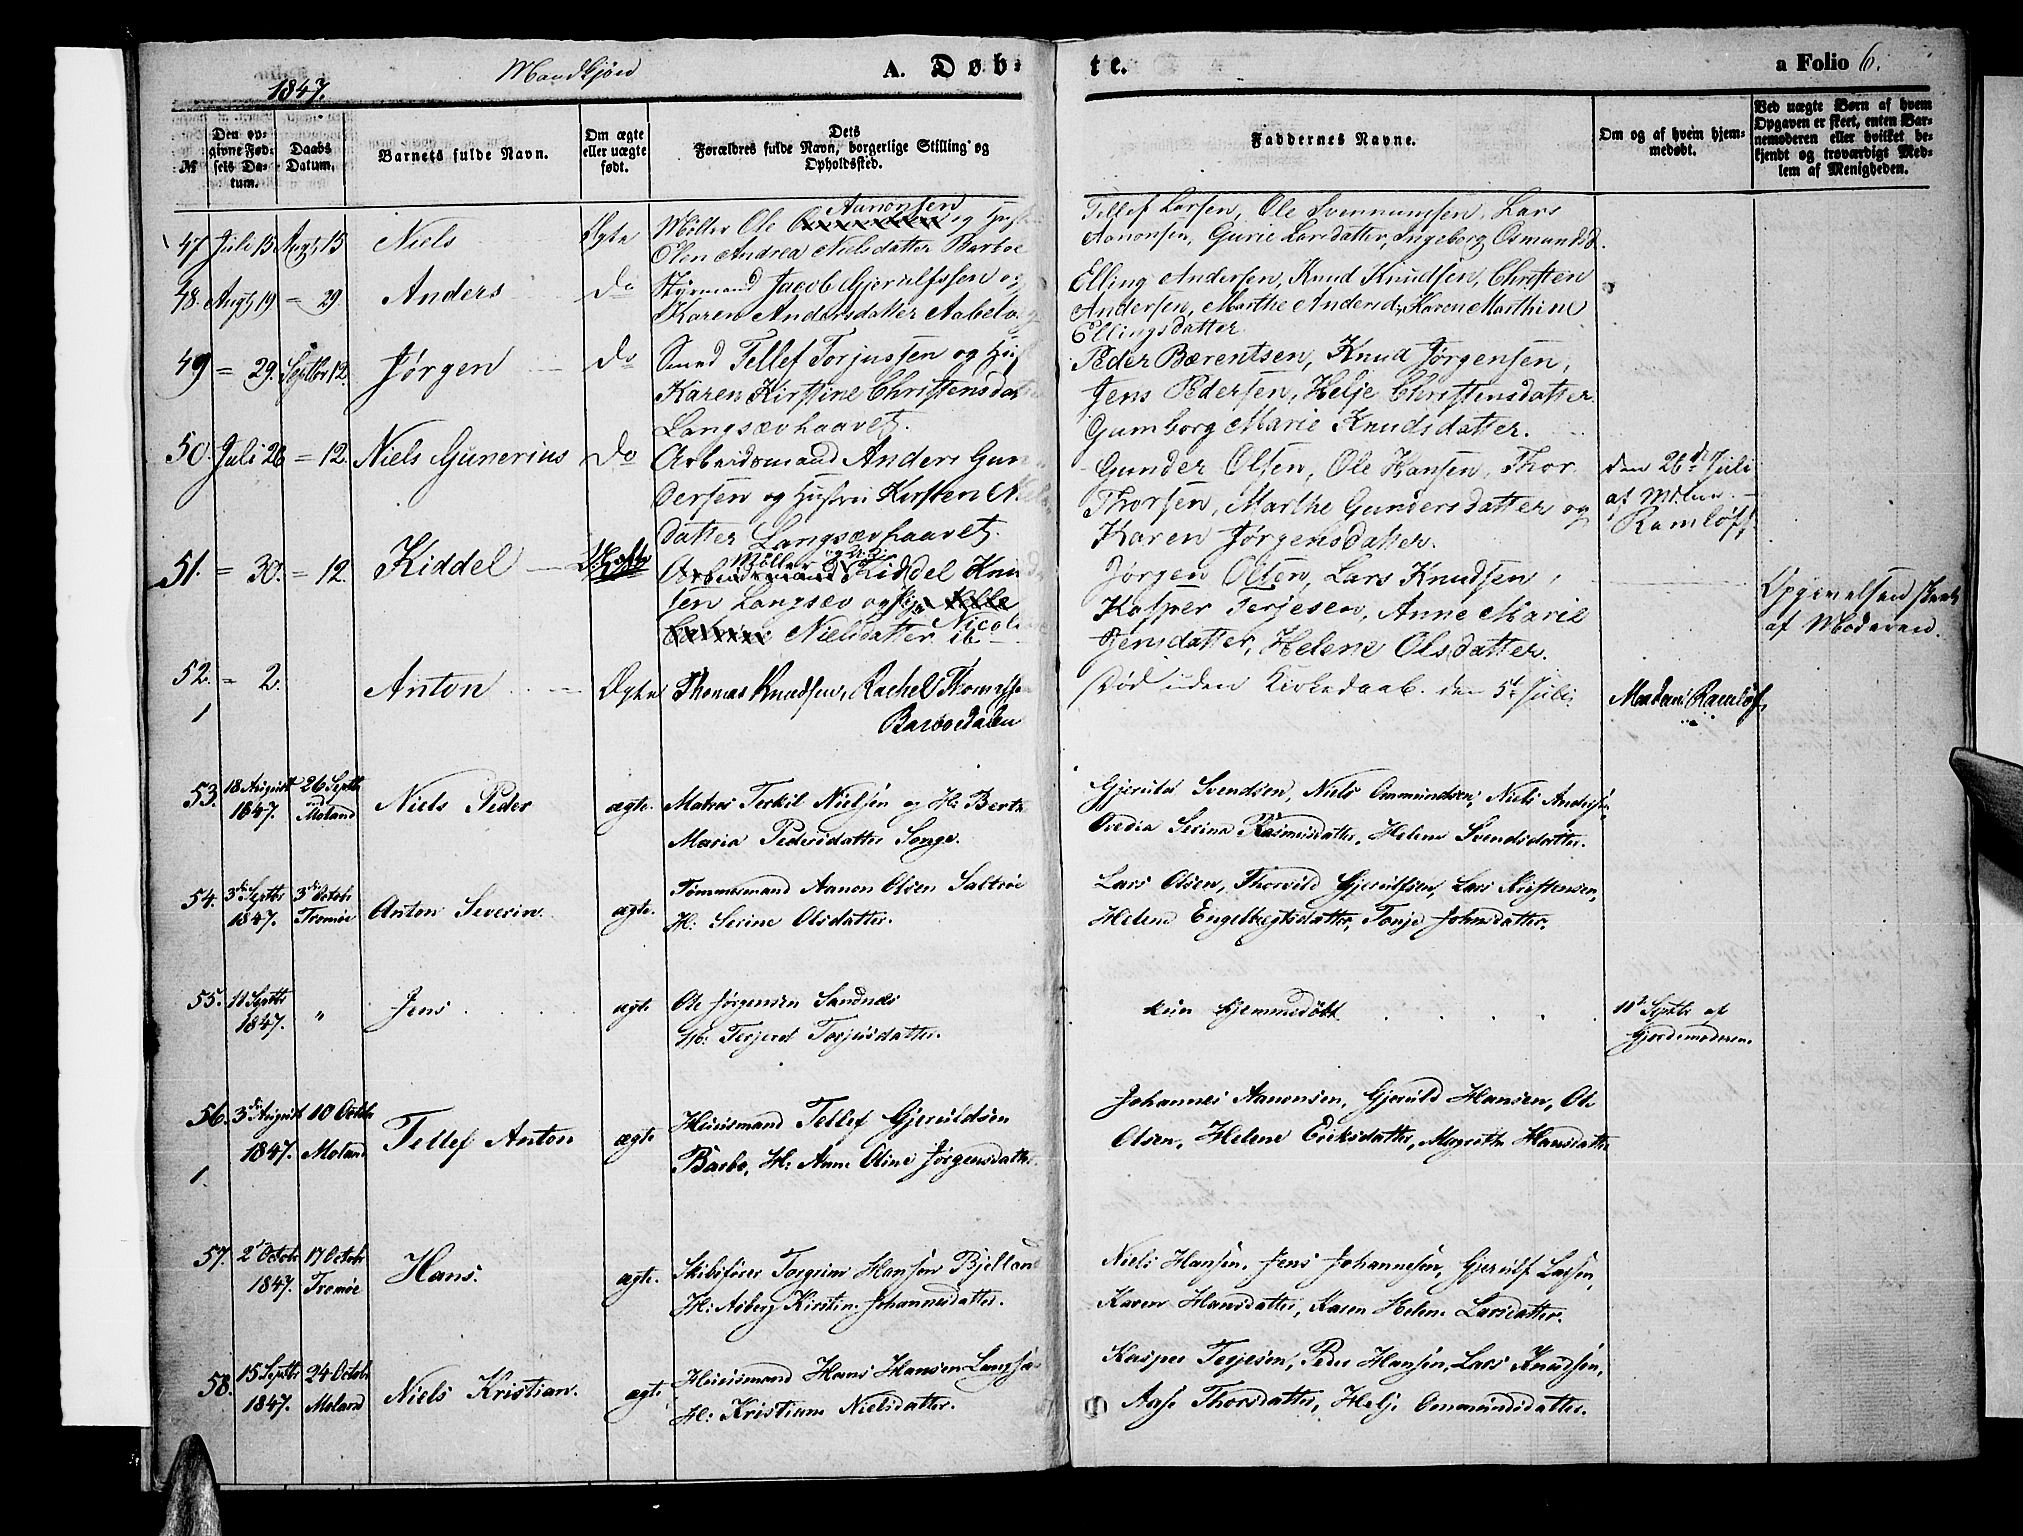 Mandkjøn
1847.
A. Døb-
te.
a Folio 6.
№
Den opgivne Fødsels Datum.
Daabs Datum.
Barnets fulde Navn.
Om ægte eller uægte født.
Dets Forældres fulde Navn, borgerlige Stilling og Opholdssted.
Faddernes Navne.
Om og af hvem hjemmedøbt.
Ved uægte Børn af hvem Opgaven er skeet, enten Barnemoderen eller hvilket bekjendt og troværdigt Medlem af Menigheden.
47 Juli 15. Augt 15 Niels Ægte Møller Ole Aanonsen og Hustru
Elen Andrea Nielsdatter Barboe
Tellef Larsen, Ole Svennungsen, Lars
Aanonsen, Gurie Larsdatter, Ingeborg Osmundsd.
48. Augt 19 = 29. Anders Do Styrmand Jacob Gjerulfssen og
Karen Andersdatter
Elling Andersen, Knud Knudsen, Christen
Andersen, Marthe Andersd, Karen Marthine
Ellingsdatter
49 = 29. Septbr 12. Jørgen Do Smed Tellef Torjussen og
Karen Kirstine Christensdatter
Langsævhaavet.
Peder Bærentsen, Knud Jørgensen,
Jens Pedersen, Helje Christensdatter
Gumborg Marie Knudsdatter.
50. Juli 26 = 12. Niels Gunerius Do Arbeidsmand Anders Gun
dersen og Hustru Kirsten Niels
datter Langsævhaavet.
Gunder Olsen, Ole Hansen, Thor
Thorsen, Marthe Gundersdatter og
Karen Jørgensdatter.
den 26de Juli
af Madam
Ramløff
51. = 30. = 12. Kiddel Uægte Møller Kiddel Knud
sen Langsæv og Nicoline
Nielsdatter ib
Jørgen Olsen, Lars Knudsen,
Kasper Terjesen, Anne Marie
Jensdatter, Helene Olsdatter.
Opgivelsen skeet
af Moderen.
52. = 2. Anton Ægte Thomas Knudsen, Rachel
Barboedalen
1
død uden Kirkedaab. den 5te Juli
Madam Ramløf
53. 18 August 1847. 26 Septbr Moland Niels Peder ægte. Matros Terkil Nielsen og H: Berthe
Maria Pedersdatter Songe.
Gjeruld Svendsen, Niels Ommundsen, Niels Andersen
Ovedia Serine Rasmusdatter, Helene Svendsdatter.
54. 3die Septbr 1847. 3die Octobr Tromøe Anton Severin. ægte. Tømmermand Aanon Olsen Saltrøe
H: Serine Olsdatter.
Lars Olsen, Thorvild Gjerulfsen, Lars Kristensen,
Helene Engelbregtsdatter, Tonje Johnsdatter.
55. 11 Septbr 1847. " Jens ægte Ole Jørgensen Sandnes
H: Terjerd Torjusdatter.
kun hjemmedøbt
11te Septbr af
Gjordemoderen.
56. 3die August 1847. 10 Octbr Moland Tellef Anton ægte Huusmand Tellef Gjeruldsen
Barbo, H: Anne Oline Jørgensdatter.
1.
Johannes Aanonsen, Gjeruld Hansen, Ole
Olsen, Helene Eriksdatter, Magrethe Hansdatter
57. 2den Octobr 1847. 17 Octobr Tromøe Hans. ægte. Skibsfører Torgrim Hansen Bjelland
H: Asberg Kirstine Johannesdatter.
Niels Hansen, Jens Johannesen, Gjerulf Larsen,
Karen Hansdatter, Karen Helene Larsdatter.
58. 15 Septbr 1847. 24 Octobr Moland Niels Kristian. ægte Huusmand Hans Hansen Langsæv
H: Kristiane Nielsdatter.
Kasper Terjesen, Peder Hansen, Lars Knudsen,
Aase Thorsdatter, Helje Ommundsdatter.